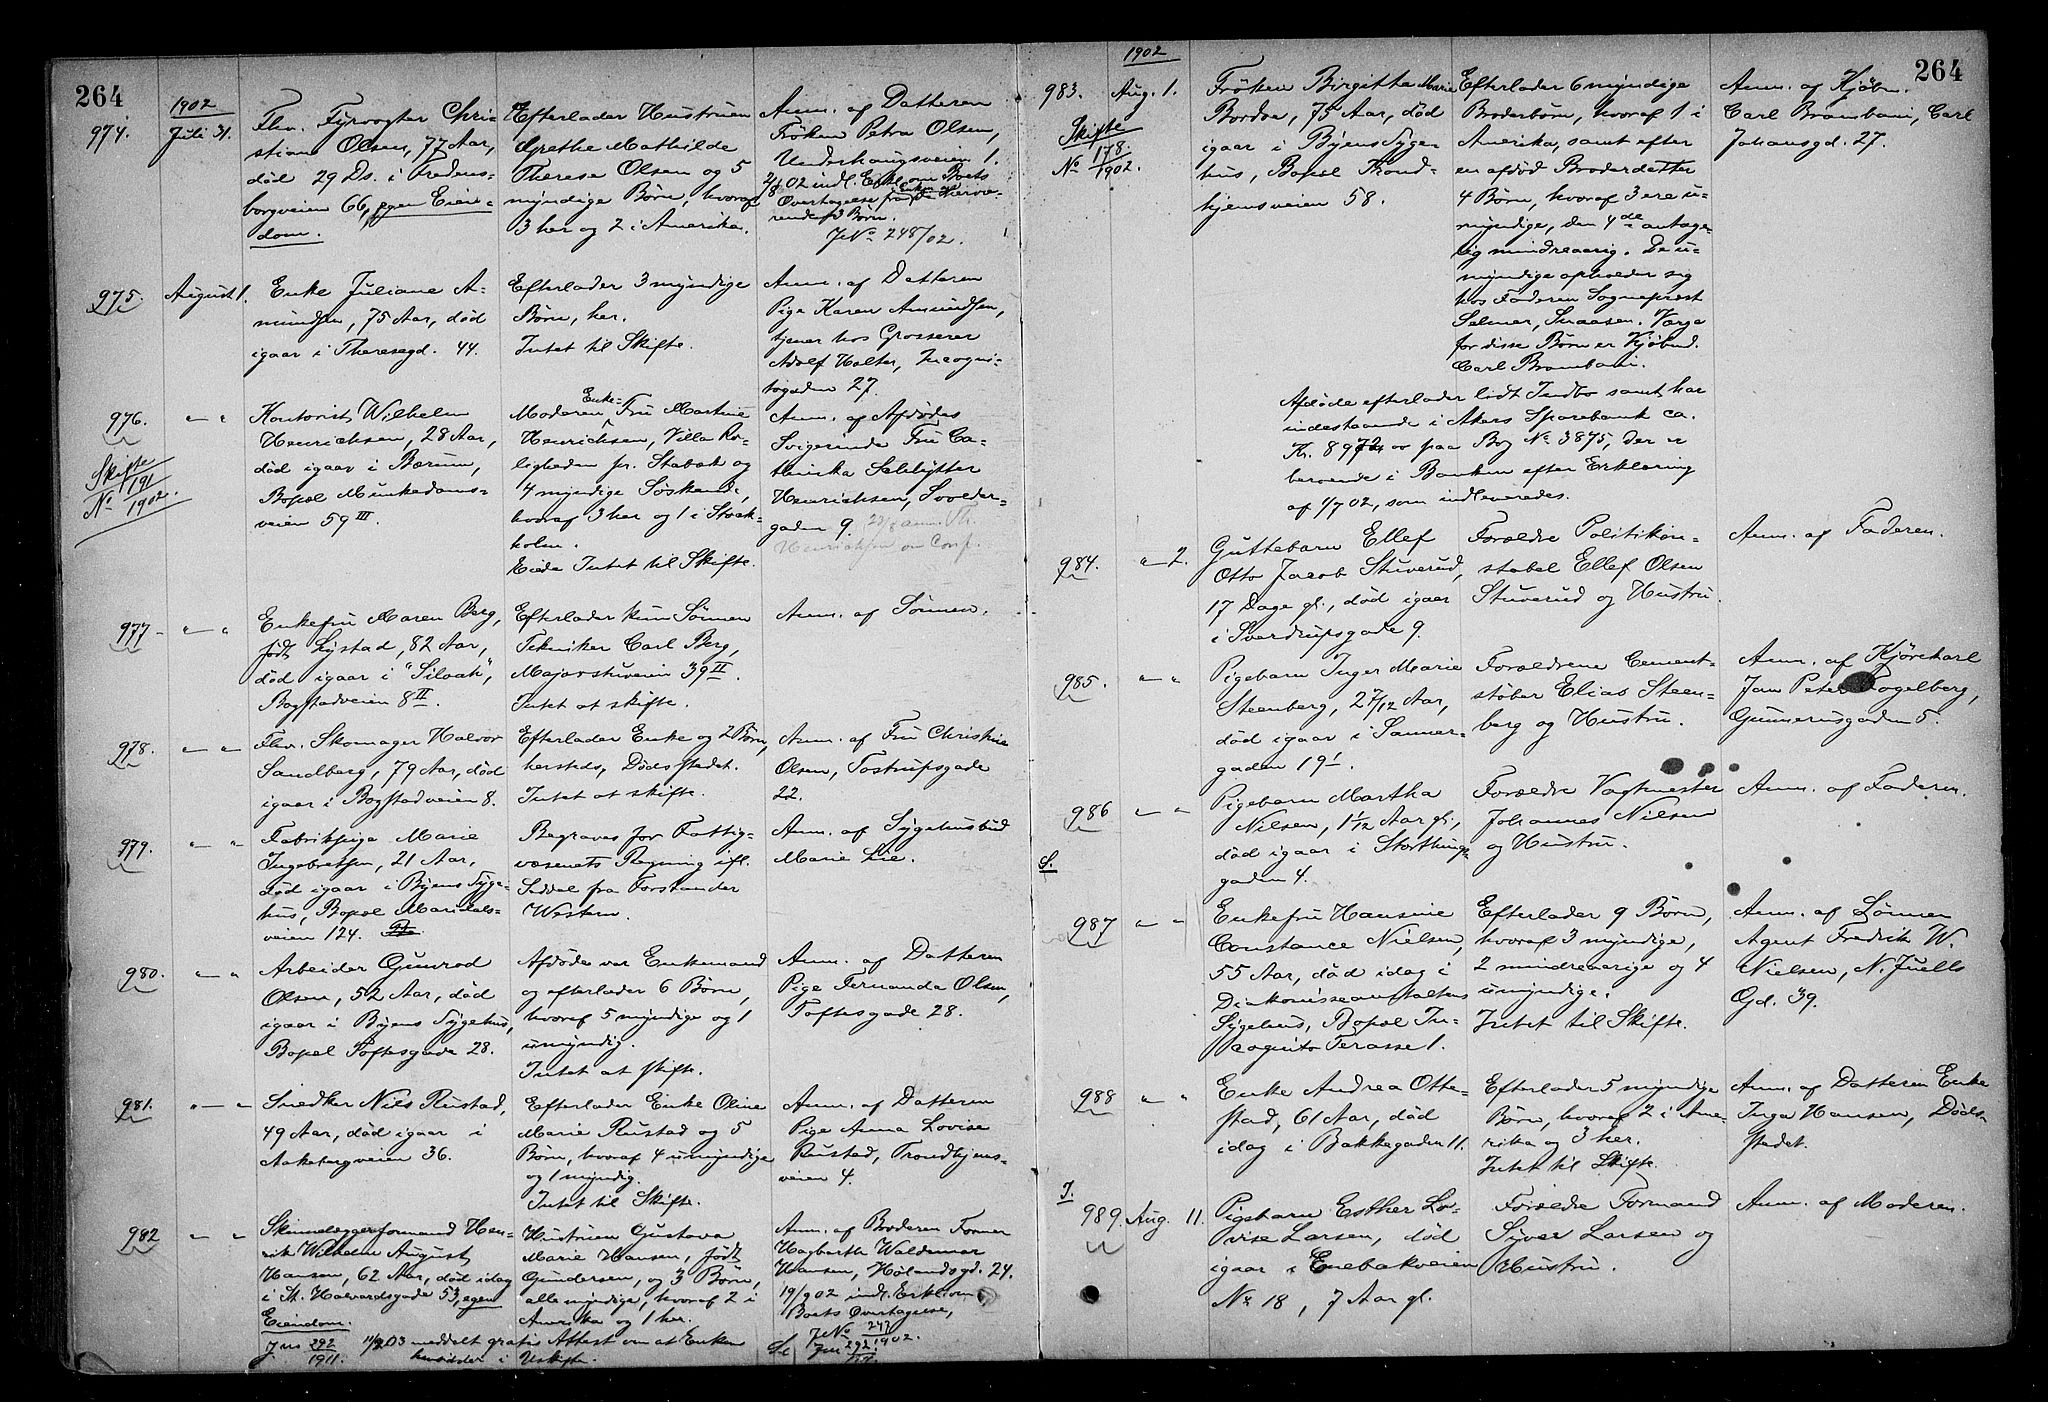 264
1902
974. Juli 31.
Fhv. Fyrvogter Chri-
stian Olsen, 77 Aar,
død 29 Ds. i Fredens-
borgveien 66, egen Eien-
dom.
Efterlader Hustruen
Grethe Mathilde
Therese Olsen og 5
myndige Børn, hvoraf
3 her og 2 i Amerika.
Anm. af Datteren
Frøken Petra Olsen,
Underhaugsveien 1.
2/8 02 indl. Erkl. om Boets
Overtagelse fra Enken og de hervæ-
rende 3 Børn.
JNo 248/02.
975. August 1.
Enke Juliane A-
mundsen, 75 Aar, død
igaar i Theresegd. 44.
Efterlader 3 myndige
Børn, her.
Intet til Skifte.
Anm. af Datteren
Pige Karen Amundsen,
tjener hos Grosserer
Adolf Halter, Incogni-
togaden 27.
976. " — "
Skifte
No 191/1902.
Kontorist Wilhelm
Henrichsen, 28 Aar,
død igaar i Bærum,
Bopæl Munkedams-
veien 59 III.
Moderen Enke-Fru Martine
Henrichsen, Villa Ro-
ligheden pr. Stabæk og
4 myndige Søskende,
hvoraf 3 her og 1 i Stock-
holm.
Intet til Skifte.
Anm. af Afdødes
Svigerinde Fru Ca-
thinka Schlytter
Henrichsen, Svolder-
gaden 9. 22/8 anm. Th.
Henrichsen om Conf.
977. " — "
Enkefru Maren Berg,
født Lystad, 82 Aar,
død igaar i "Siloah",
Bogstadveien 8 II.
Efterlader kun Sønnen
Tekniker Carl Berg,
Majorstuveien 39 II.
Intet at skifte.
Anm. af Sønnen.
978. " — "
Fhv. Skomager Halvor
Sandberg, 79 Aar, død
igaar i Bogstadveien 8.
Efterlader Enke og 2 Børn,
hersteds, Dødsstedet.
Intet at skifte.
Anm. af Fru Christine
Olsen, Tostrupsgade
22.
979. " — "
Fabrikpige Marie
Ingebretsen, 21 Aar,
død igaar i Byens Syge-
hus, Bopæl Maridals-
veien 124.
Begraves for Fattig-
væsenets Regning ifl.
Seddel fra Forstander
Western.
Anm. af Sygehusbud
Marie Lie.
980. " — "
Arbeider Gunerod
Olsen, 52 Aar, død
igaar i Byens Sygehus,
Bopæl Toftesgade 28.
Afdøde var Enkemand
og efterlader 6 Børn,
hvoraf 5 myndige og 1
umyndig.
Intet at skifte.
Anm. af Datteren
Pige Fernanda Olsen,
Toftesgade 28.
981. " — "
Snedker Nils Rustad,
49 Aar, død igaar i
Aakebergveien 36.
Efterlader Enke Oline
Marie Rustad og 5
Børn, hvoraf 4 umyndige
og 1 myndig.
Intet til Skifte.
Anm. af Datteren
Pige Anna Lovise
Rustad, Trondhjems-
veien 4.
982 " — "
Skinnelæggerformand Hen-
rik Wilhelm August
Hansen, 62 Aar, død idag
i St. Halvardsgade 53, egen
Eiendom.
Jns 292/1911.
Hustruen Gustava
Marie Hansen, født
Gundersen, og 3 Børn,
alle myndige, hvoraf 2 i
Amerika og 1 her.
11/2 03 meddelt gratis Attest om at Enken
hensidder i Uskifte.
Anm. af Broderen Former
Hagbarth Waldemar
Hansen, Hølandsgd. 24.
19/9 02 indl. Erkl. om
Boets Overtagelse,
JNo 247/1902.
264
1902
983. Aug. 1.
Skifte
No 178/1902.
Frøken Birgitte Marie
Bordoe, 75 Aar, død
igaar i Byens Syge-
hus, Bopæl Trond-
hjemsveien 58.
Efterlader 6 myndige
Broderbørn, hvoraf 1 i
Amerika, samt efter
en afdød Broderdatter
4 Børn, hvoraf 3 ere u-
myndige, den 4de antage-
lig mindreaarig. De u-
myndige opholder sig
hos Faderen Sogneprest
Selmer, Snaasen. Værge
for disse Børn er Kjøbmd.
Carl Brambani.
Afdøde efterlader lidt Indbo samt har
indestaaende i Akers Sparebank ca.
Kr. 8972 00 paa Bog No 3875, der er
beroende i Banken efter Erklæring
af 1/7 02, som indleveredes.
Anm. af Kjøbm.
Carl Brambani, Carl
Johansgd. 27.
984. " — 2.
Guttebarn Ellef
Otto Jacob Stuverud,
17 Dage gl., død igaar
i Sverdrupsgade 9.
Forældre Politikon-
stabel Ellef Olsen
Stuverud og Hustru.
Anm. af Faderen.
985. " — "
Pigebarn Inger Marie
Steenberg, 2 7/12 Aar,
død igaar i Sanner-
gaden 19 I.
Forældrene Cement-
støber Elias Steen-
berg og Hustru.
Anm. af Kjørekarl
Jans Peter Fogelberg,
Gunnerusgaden 5.
986 " — "
Pigebarn Martha
Nilsen, 1 1/12 Aar gl.,
død igaar i Storthings-
gaden 4.
Forældre Vagtmester
Johannes Nilsen
og Hustru.
Anm. af Faderen.
S.
987 " — "
Enkefru Hansine
Constance Nielsen,
55 Aar, død idag i
Diakonisseanstaltens
Sygehus, Bopæl In-
cognito Terasse 1.
Efterlader 9 Børn,
hvoraf 3 myndige,
2 mindreaarige og 4
umyndige.
Intet til Skifte.
Anm. af Sønnen
Agent Fredrik W.
Nielsen, N. Juells
Gd. 39.
988 " — "
Enke Andrea Otte-
stad, 61 Aar, død
idag i Bakkegaden 11.
Efterlader 5 myndige
Børn, hvoraf 2 i Ame-
rika og 3 her.
Intet til Skifte.
Anm. af Datteren Enke
Inga Hansen, Døds-
stedet.
J.
989. Aug. 11.
Pigebarn Esther Lo-
vise Larsen, død
igaar i Enebakveien
No 18, 7 Aar gl.
Forældre Formand
Syver Larsen og
Hustru.
Anm. af Moderen.